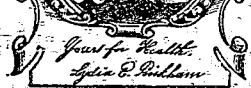 Yours for Health.
Lydia E. Pinkham